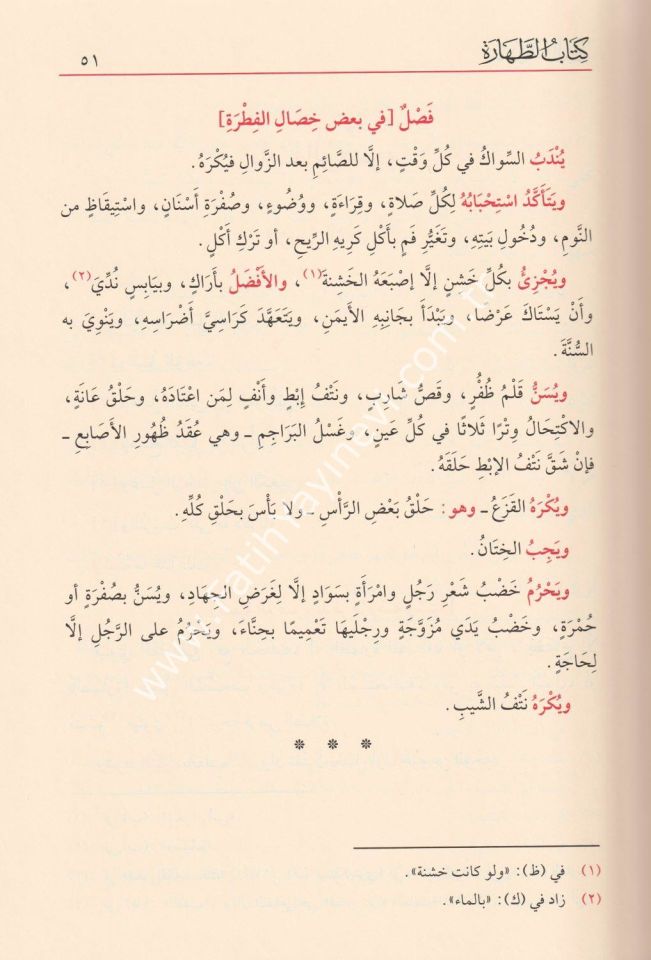 كِتَابُ الطَّهَارَة
٥١
فَصْلٌ [في بعض خِصَالِ الفِطْرَةِ]
يُنْدَبُ السِّواكُ في كُلِّ وَقْتٍ، إلَّا للصَّائِمِ بعد الزَّوالِ فيُكْرَهُ.
ويَتَأَكَّدُ اسْتِحْبَابُهُ لِكُلِّ صَلاةٍ، وقِرَاءَةٍ، ووُضُوءٍ، وصُفْرَةِ أَسْنَانٍ، واسْتِيقَاظٍ من
النَّومِ، ودُخُولِ بَيتِهِ، وتَغَيُّرِ فَمٍ بأَكْلِ كَرِيهِ الرِّيحِ، أو تَرْكِ أَكْلٍ.
ويُجْزِئُ بكُلِّ خَشِنٍ إلَّا إصْبَعَهُ الخَشِنةَ(١)، والأَفْضَلُ بأَرَاكٍ، وبيَابِسٍ نُدِّيَ(٢)،
وأَنْ يَسْتَاكَ عَرْضا، ويَبْدَأَ بجَانِبِهِ الأَيمَنِ، ويَتَعَهَّدَ كَرَاسِيَّ أَضْرَاسِهِ، ويَنْوِيَ به
السُّنَّةَ.
ويُسَنُّ قَلْمُ ظُفْرٍ، وقَصُّ شَارِبٍ، ونَتْفُ إبْطٍ وأَنْفٍ لِمَن اعْتَادَهُ، وحَلْقُ عَانَةٍ،
والاكْتِحَالُ وِتْرًا ثَلاثًا في كُلِّ عَينٍ، وغَسْلُ البَرَاجِمِ ـ وهي عُقَدُ ظُهُورِ الأَصَابِعِ ـ
فإنْ شَقَّ نَتْفُ الإبْطِ حَلَقَهُ.
ويُكْرَهُ القَزَعُ ـ وهو: حَلْقُ بَعْضِ الرَّأْسِ ـ ولا بَأْسَ بحَلْقِ كُلِّهِ.
ويَجِبُ الخِتَانُ.
ويَحْرُمُ خَضْبُ شَعْرِ رَجُلٍ وامْرَأَةٍ بسَوَادٍ إلَّا لِغَرَضِ الجِهَادِ، ويُسَنُّ بصُفْرَةٍ أو
حُمْرَةٍ، وخَضْبُ يَدَي مُزَوَّجَةٍ ورِجْلَيهَا تَعْمِيمًا بحِنَّاءَ، ويَحْرُمُ على الرَّجُلِ إلَّا
لِحَاجَةٍ.
ويُكْرَهُ نَتْفُ الشَّيبِ.
* * *
(١) في (ظ): «ولو كانت خشنة».
(٢) زاد في (ك): «بالماء».
www.fatihyayinevi.com.tr